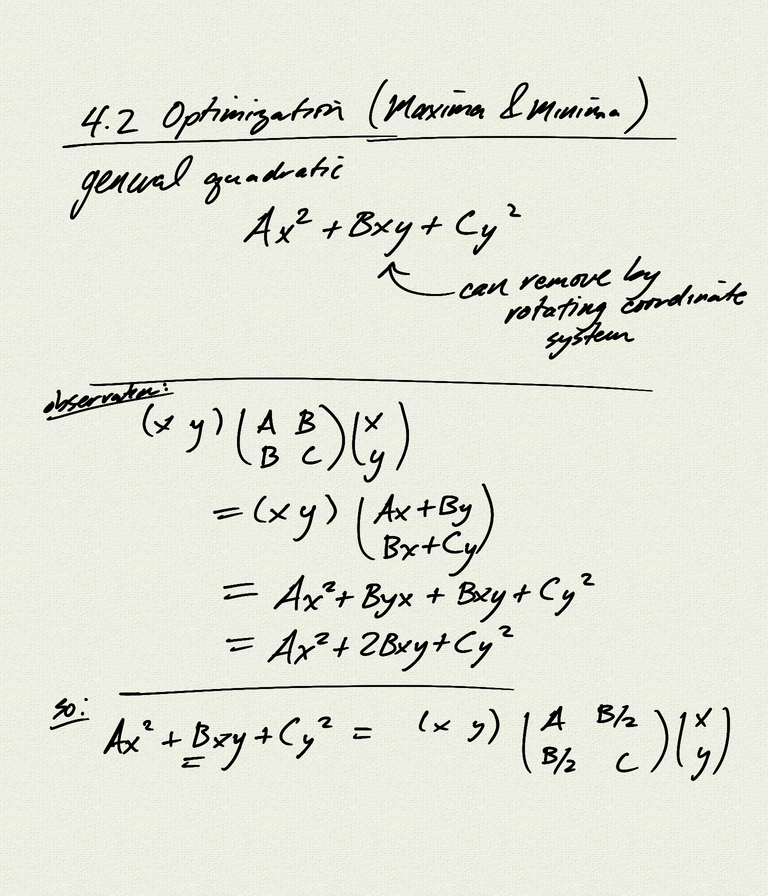 4.2 Optimization (Maxima & Minima)
general quadratic
Ax² + Bxy + Cy²
can remove by
rotating coordinate
system
observation:
(x y) (A B) (x)
(B C) (y)
= (x y) (Ax+By)
(Bx+Cy)
= Ax² + Byx + Bxy + Cy²
= Ax² + 2Bxy + Cy²
so:
Ax² + Bxy + Cy² = (x y) (A B/2) (x)
(B/2 C) (y)